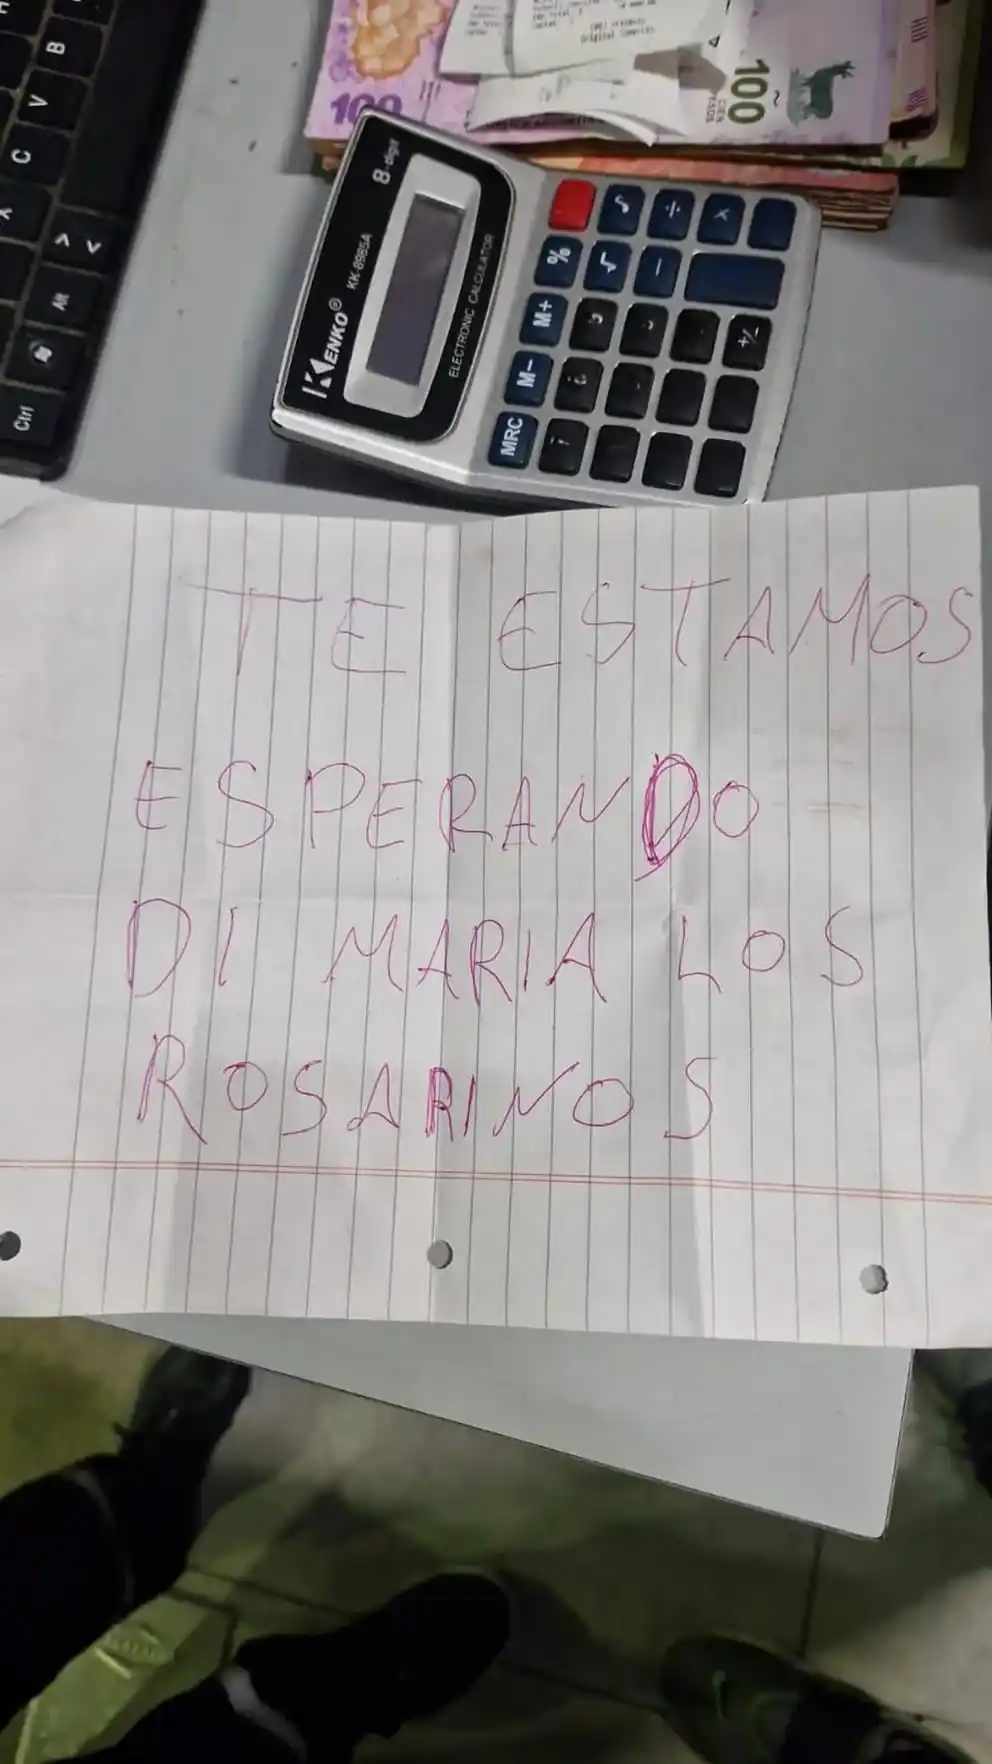 B
V
C
Alt
Ctrl
100
100
CIEN
PESOS
Original
8-digit
KENKO®
KK-8985A
ELECTRONIC CALCULATOR
÷
×
%
√
−
M+
+/-
M−
MRC
TE ESTAMOS
ESPERANDO
DI MARIA LOS
ROSARINOS